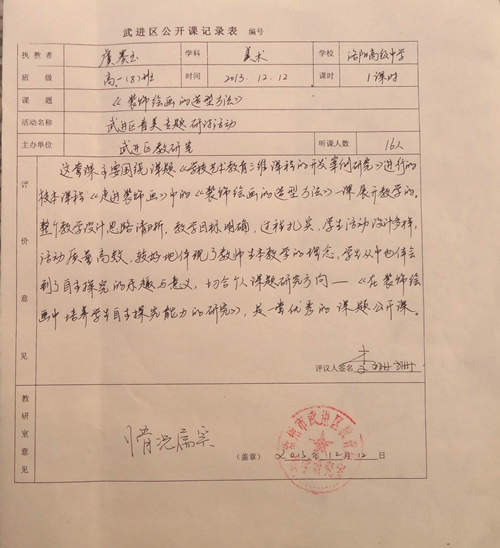 武进区公开课记录表 编号
执教者 学科 美术 学校 洛阳高级中学
班级 高一(8)班 时间 2013.12.12 课时 1课时
课题 《装饰绘画的造型方法》
活动名称 武进区青美专题研讨活动
主办单位 武进区教研室 听课人数 16人
评价意见
这堂课主要围绕课题《学校艺术教育三维课程的开发案例研究》进行的
校本课程《走进装饰画》中的《装饰绘画的造型方法》一课展开教学的。
整个教学设计思路清晰,教学目标明确,过程扎实,学生活动设计多样,
活动质量高效,较好地体现了教师生本教学的理念,学生从中也体会
到了自主探究的乐趣与意义,切合个人课题研究方向——《在装饰绘
画中培养学生自主探究能力的研究》,是一堂优秀的课题公开课。
评议人签名
教研室意见
情况属实
(盖章) 2013年12月12日
常州市武进区教育